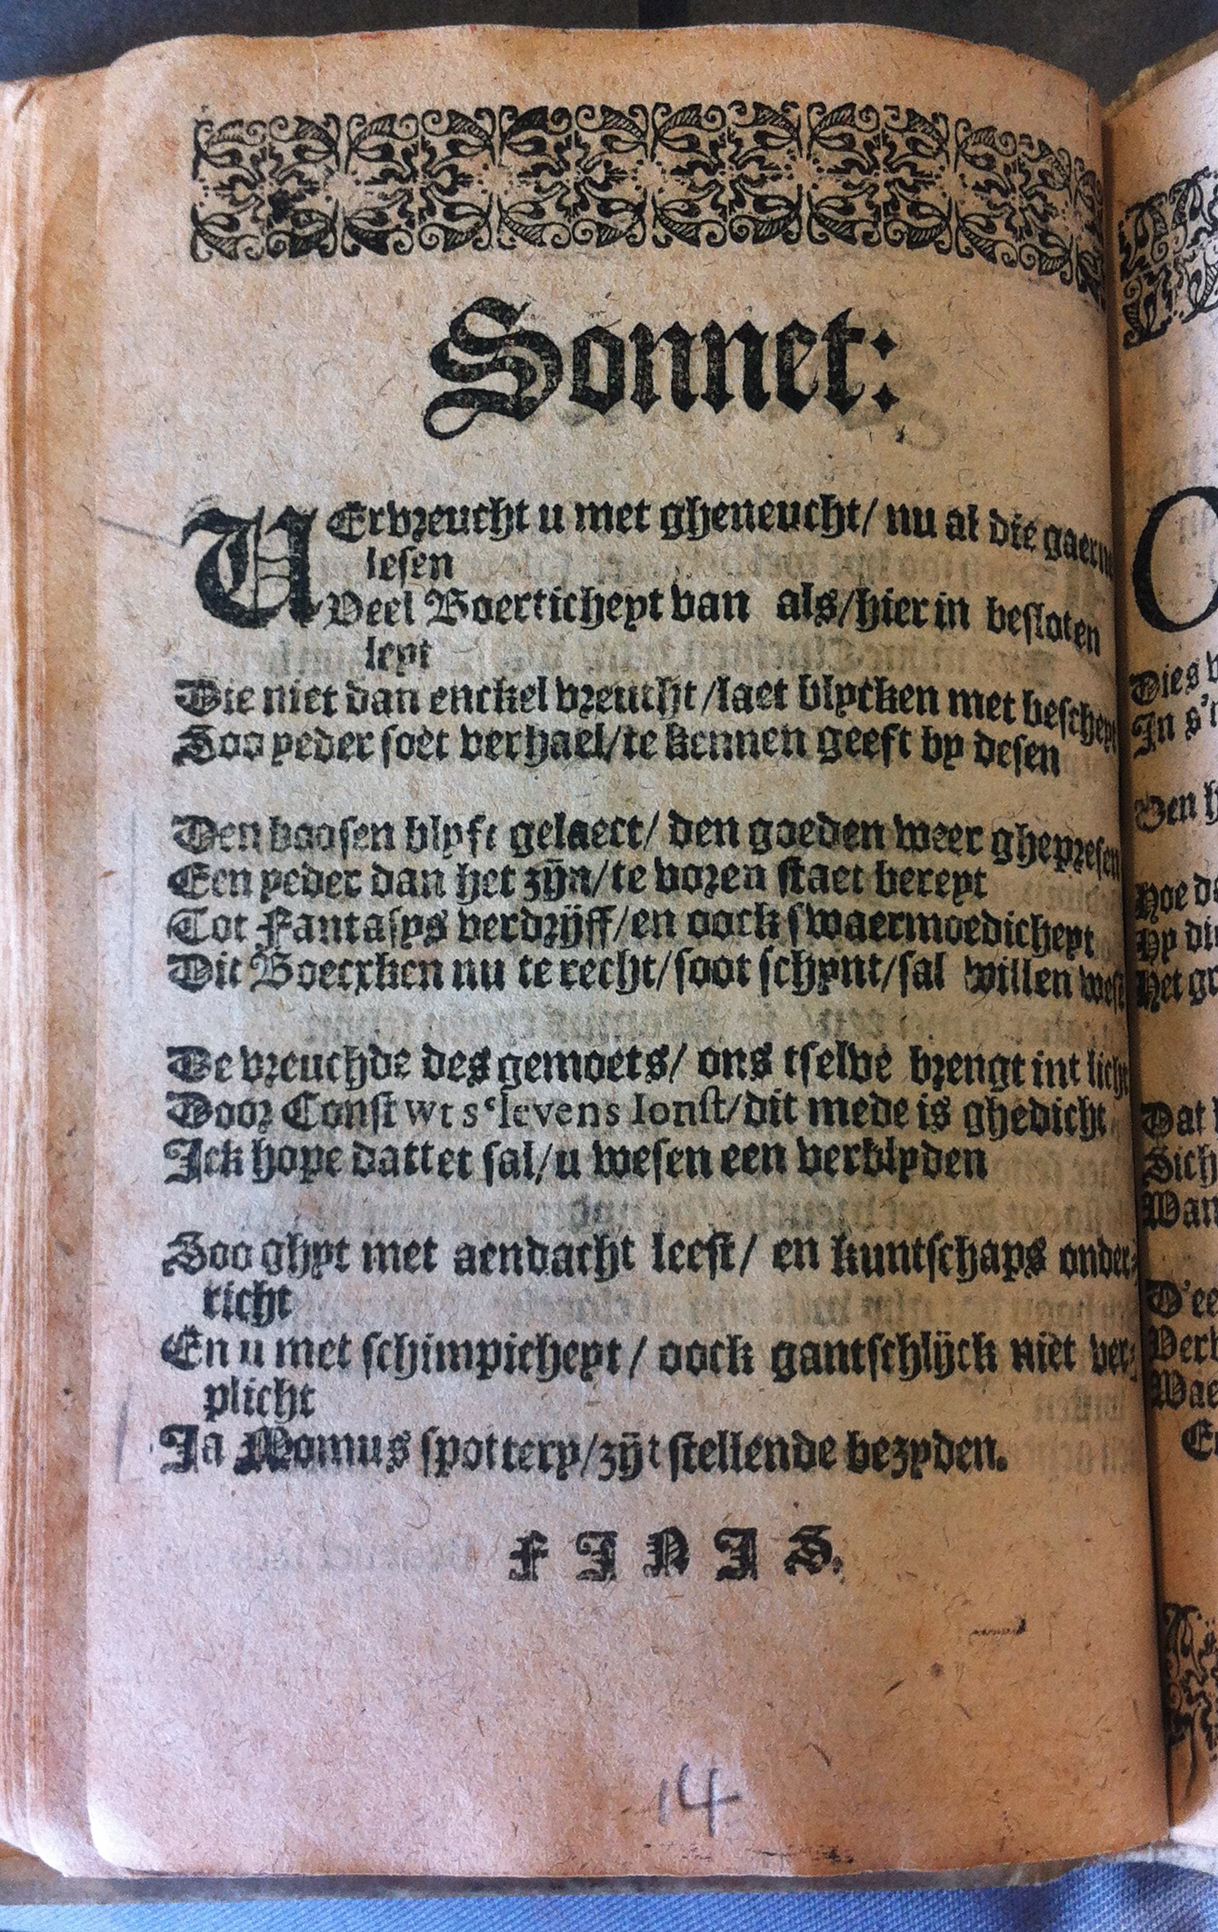 Sonnet:
VErvreucht u met gheneucht/ nu al die gaern
lesen
Veel Boerticheyt van als/hier in besloten
leyt
Die niet dan enckel vreucht/laet blycken met bescheyt
Soo yeder soet verhael/te kennen geeft by desen
Den boosen blyft gelaect/ den goeden weer ghepresen
Een yeder dan het zijn/te voren staet bereyt
Tot Fantasys verdrijff/en oock swaermoedicheyt
Dit Boecxken nu te recht/soot schynt/sal willen wese
De vreuchde des gemoets/ ons tselve brengt int licht
Door Const wt s'levens Ionst/dit mede is ghedicht
Ick hope dattet sal/u wesen een verblyden
Soo ghyt met aendacht leest/ en kuntschaps onder-
richt
En u met schimpicheyt/ oock gantschlijck niet ver-
plicht
Ja Momus spottery/zijt stellende bezyden.
FINIS.
14
Dies
In s't
Den h
Hoe d
Hy di
Het gr
Dat
Sich
Wan
D'ee
Verb
Wae
E